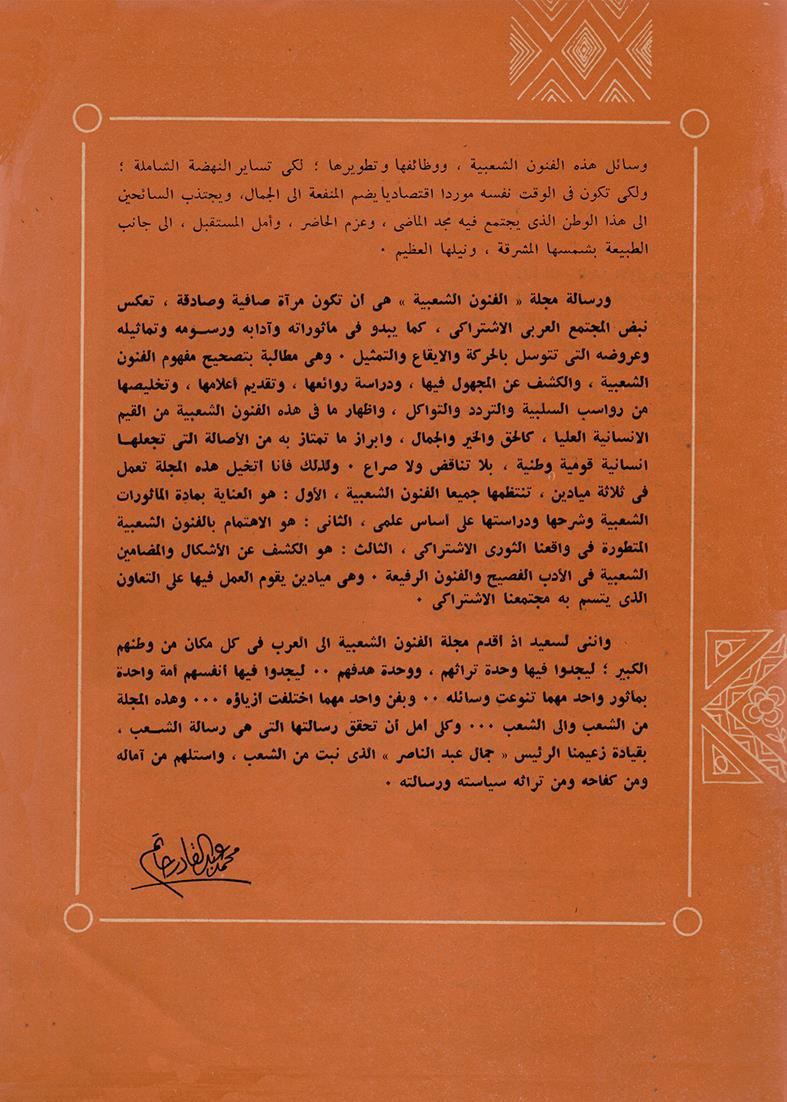 وسائل هذه الفنون الشعبية ، ووظائفها وتطويرها ؛ لكى تساير النهضة الشاملة ؛
ولكى تكون فى الوقت نفسه موردا اقتصاديا يضم المنفعة الى الجمال، ويجتذب السائحين
الى هذا الوطن الذى يجتمع فيه مجد الماضى ، وعزم الحاضر ، وأمل المستقبل ، الى جانب
الطبيعة بشمسها المشرقة ، ونيلها العظيم ٠
ورسالة مجلة « الفنون الشعبية » هى أن تكون مرآة صافية وصادقة ، تعكس
نبض المجتمع العربى الاشتراكى ، كما يبدو فى مأثوراته وآدابه ورسومه وتماثيله
وعروضه التى تتوسل بالحركة والايقاع والتمثيل ٠ وهى مطالبة بتصحيح مفهوم الفنون
الشعبية ، والكشف عن المجهول فيها ، ودراسة روائعها ، وتقديم أعلامها ، وتخليصها
من رواسب السلبية والتردد والتواكل ، واظهار ما فى هذه الفنون الشعبية من القيم
الانسانية العليا ، كالحق والخير والجمال ، وابراز ما تمتاز به من الأصالة التى تجعلها
انسانية قومية وطنية ، بلا تناقض ولا صراع ٠ ولذلك فأنا أتخيل هذه المجلة تعمل
فى ثلاثة ميادين ، تنتظمها جميعا الفنون الشعبية ، الأول : هو العناية بمادة المأثورات
الشعبية وشرحها ودراستها على أساس علمى ، الثانى : هو الاهتمام بالفنون الشعبية
المتطورة فى واقعنا الثورى الاشتراكى ، الثالث : هو الكشف عن الأشكال والمضامين
الشعبية فى الأدب الفصيح والفنون الرفيعة ٠ وهى ميادين يقوم العمل فيها على التعاون
الذى يتسم به مجتمعنا الاشتراكى ٠
واننى لسعيد اذ أقدم مجلة الفنون الشعبية الى العرب فى كل مكان من وطنهم
الكبير ؛ ليجدوا فيها وحدة تراثهم ، ووحدة هدفهم ٠٠ ليجدوا فيها أنفسهم أمة واحدة
بمأثور واحد مهما تنوعت وسائله ٠٠ وبفن واحد مهما اختلفت أزياؤه ٠٠٠ وهذه المجلة
من الشعب والى الشعب ٠٠٠ وكلى أمل أن تحقق رسالتها التى هى رسالة الشعب ،
بقيادة زعيمنا الرئيس « جمال عبد الناصر » الذى نبت من الشعب ، واستلهم من آماله
ومن كفاحه ومن تراثه سياسته ورسالته ٠
محمد عبد القادر حاتم